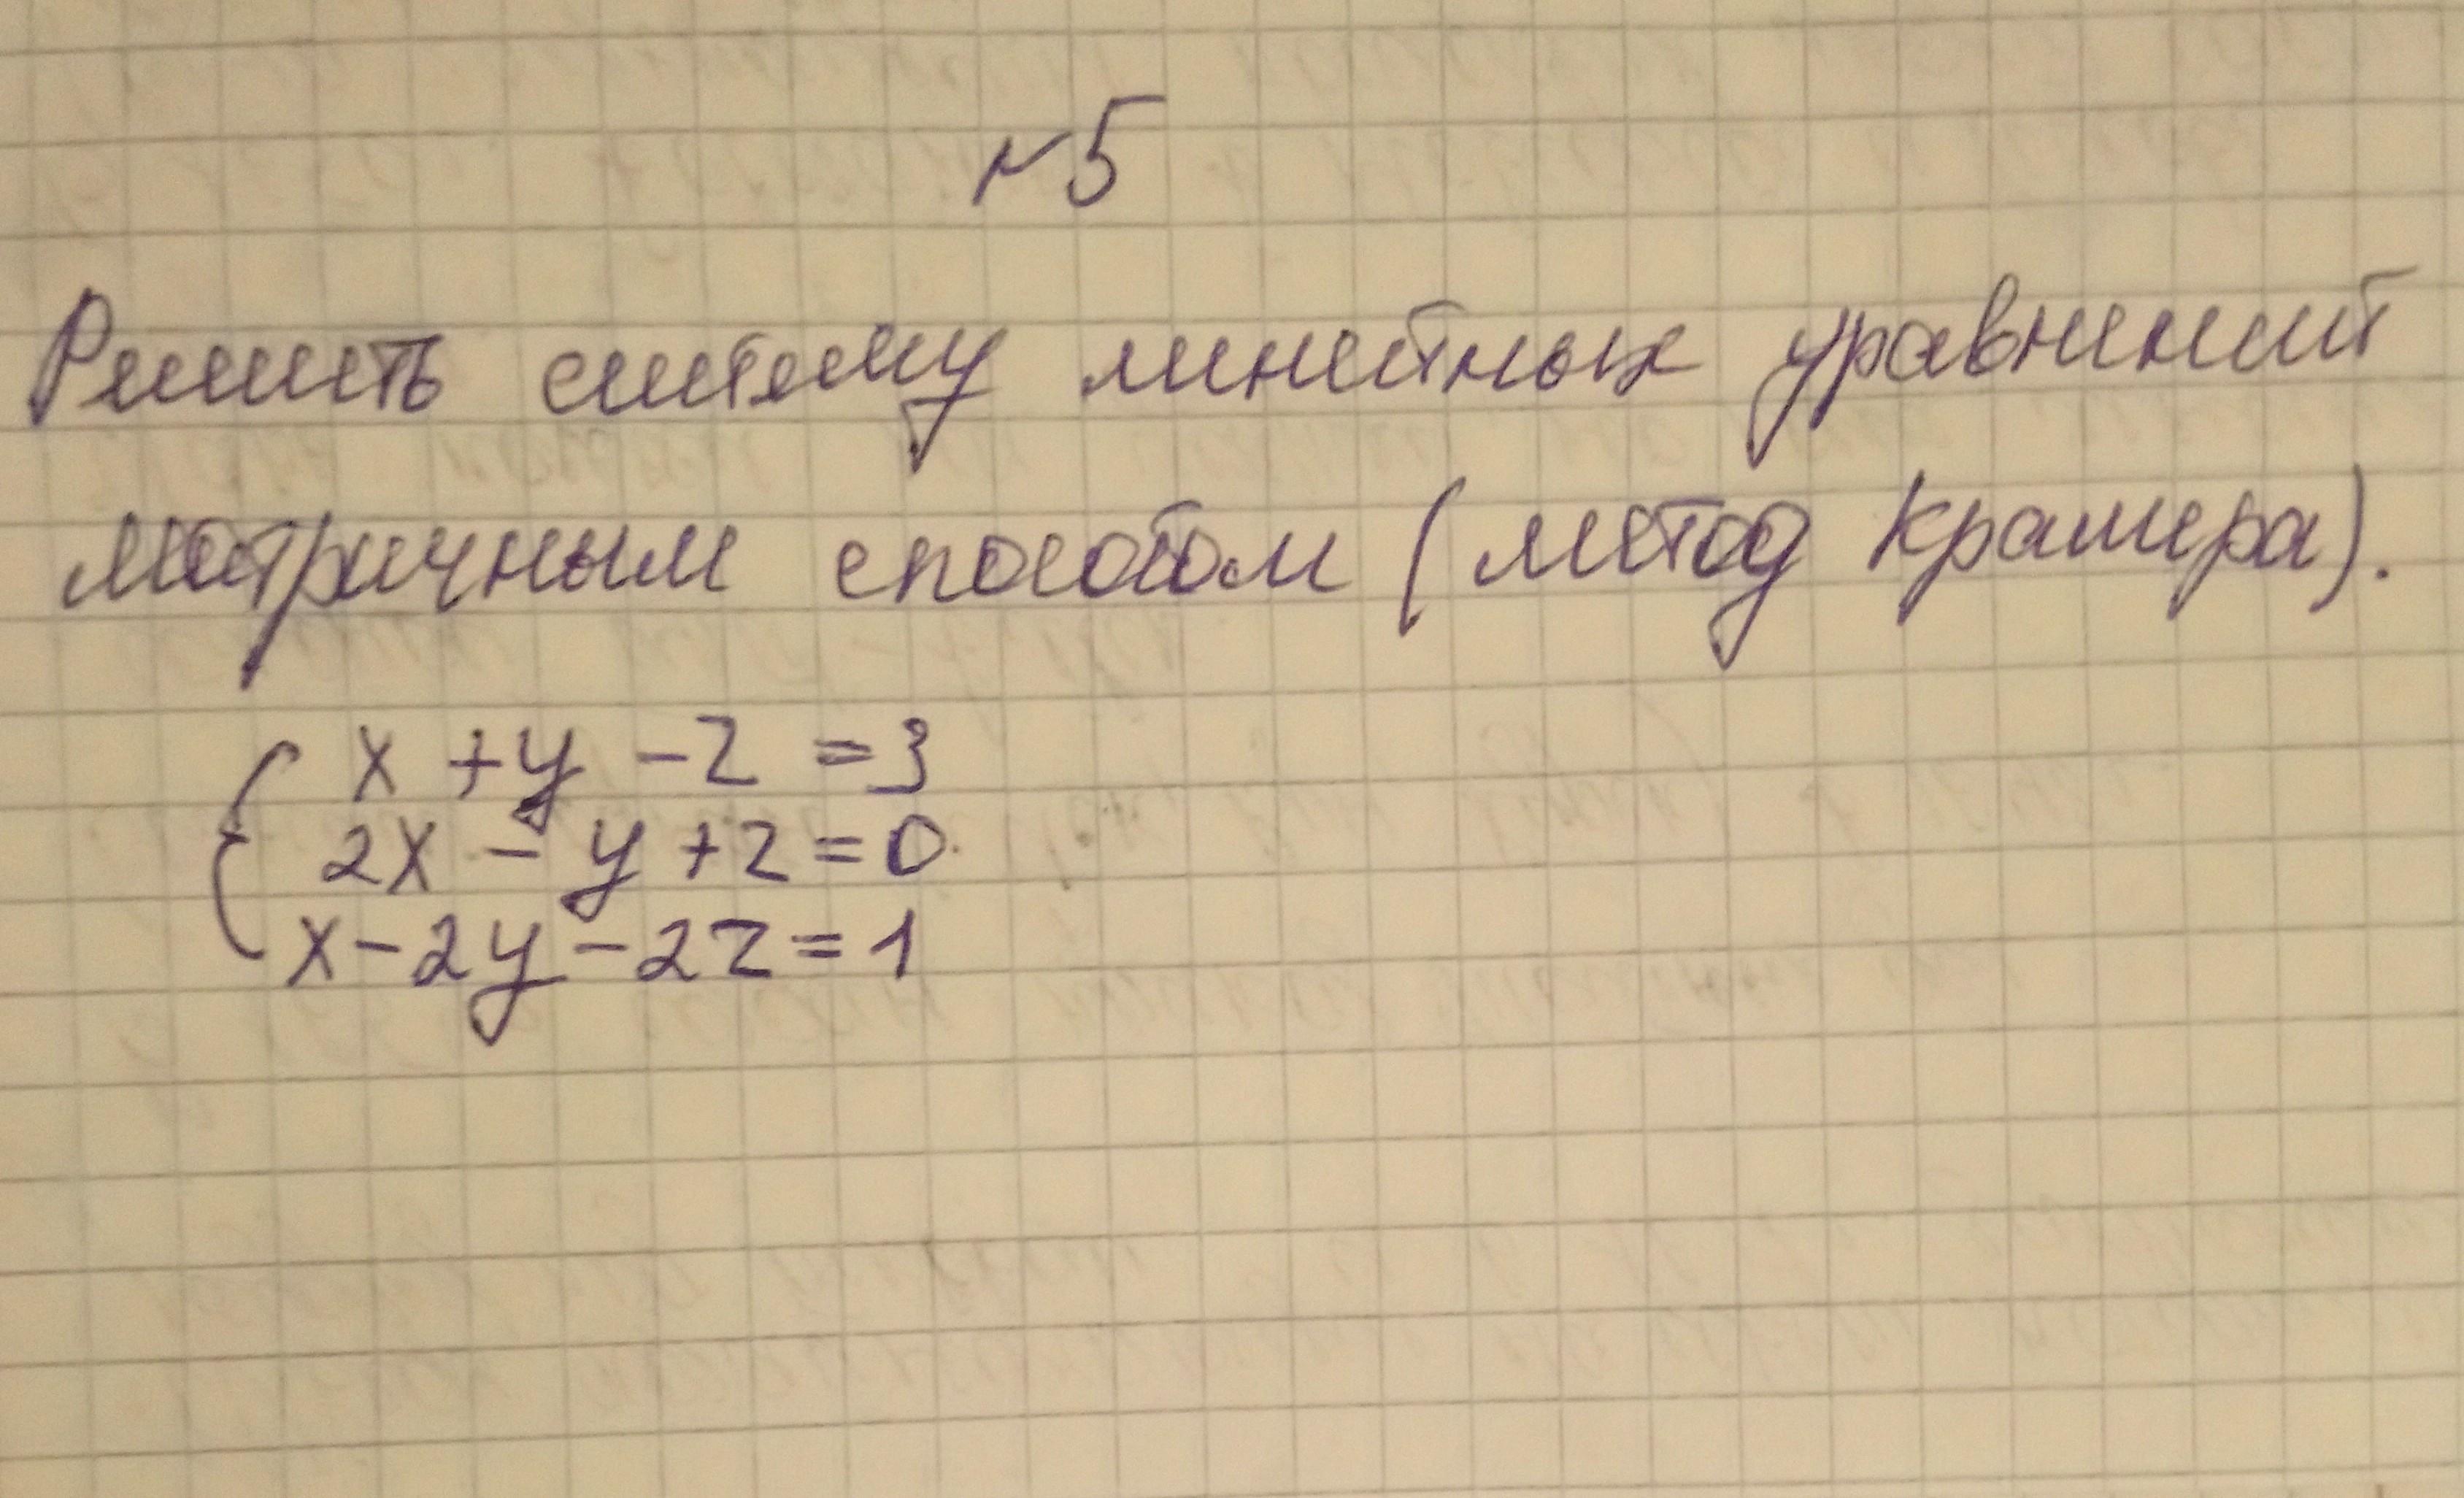 №5
Решить систему линейных уравнений
матричным способом (метод Крамера).
x + y - z = 3
2x - y + z = 0
x - 2y - 2z = 1